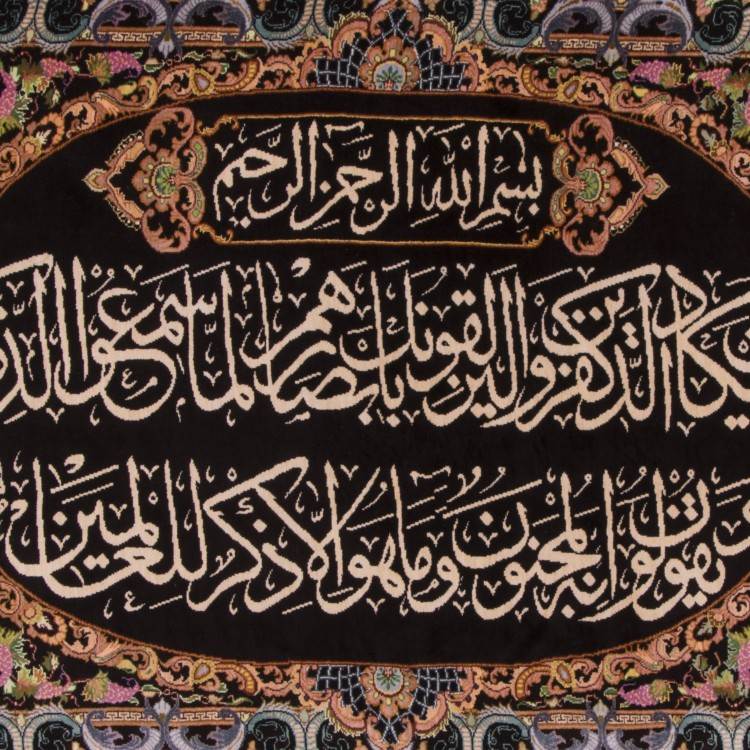 بسم الله الرحمن الرحيم
يكاد الذين كفروا ليزلقونك بابصارهم لما سمعوا الذكر
ويقولون انه لمجنون وما هو الا ذكر للعالمين